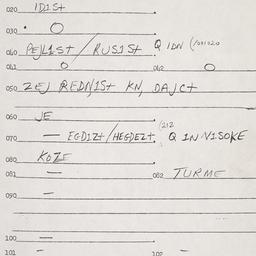 020 IDIST
030 O
040 PEJLIST / RUSIST Q IDN (/091020
041 O 042 O
050 ZEJ REDNJIST KN, DAJCT
060 JE
070 — EGDIZT/HEGDEZT. Q IN VISOKE
/212
080 KOZE
081 — 082 TURME
090 —
100 —
101 — 102 —